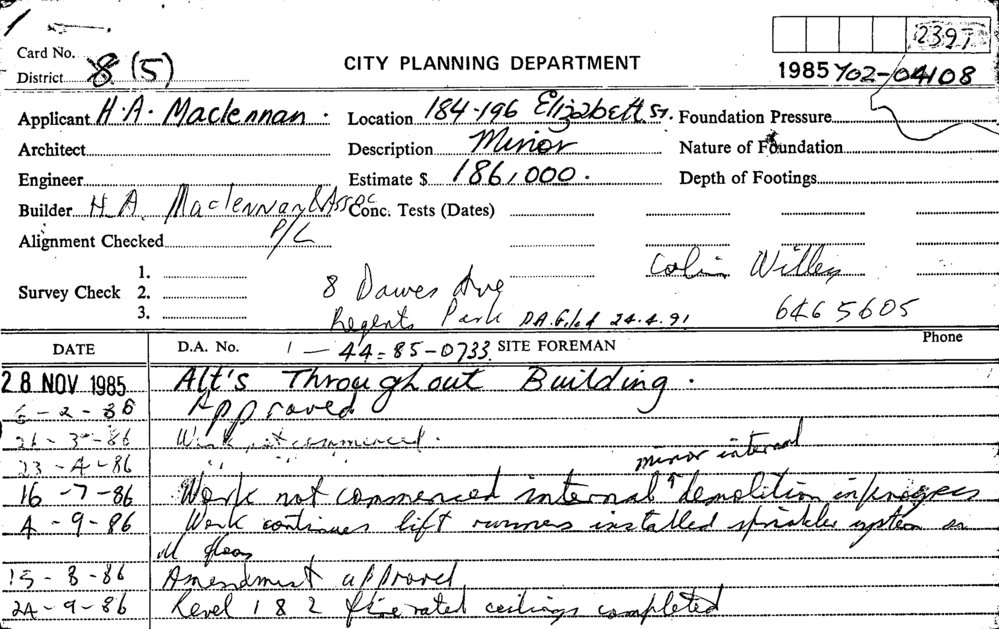 Card No.
District 8 (5)
CITY PLANNING DEPARTMENT
2397
1985 Y02-04108
Applicant H.A. Maclennan.
Location 184-196 Elizabeth St.
Foundation Pressure
Architect
Description Minor
Nature of Foundation
Engineer
Estimate $ 186,000.
Depth of Footings
Builder H.A. Maclennan & Assoc P/L
Conc. Tests (Dates)
Alignment Checked
Survey Check 1.
2.
3.
8 Dawes Ave
Regents Park D.A. filed 24.4.91
Colin Willey
646 5605
DATE D.A. No. 1 - 44=85-0733 SITE FOREMAN Phone
28 NOV 1985 Alt's Throughout Building.
6-2-86 Approved
21-3-86 Work not commenced.
23-4-86 " " "
minor internal
16-7-86 Work not commenced internal demolition in progress
4-9-86 Work continues lift runners installed sprinkler system on
all floors
15-8-86 Amendment approved
24-9-86 Level 1 & 2 fire rated ceilings completed